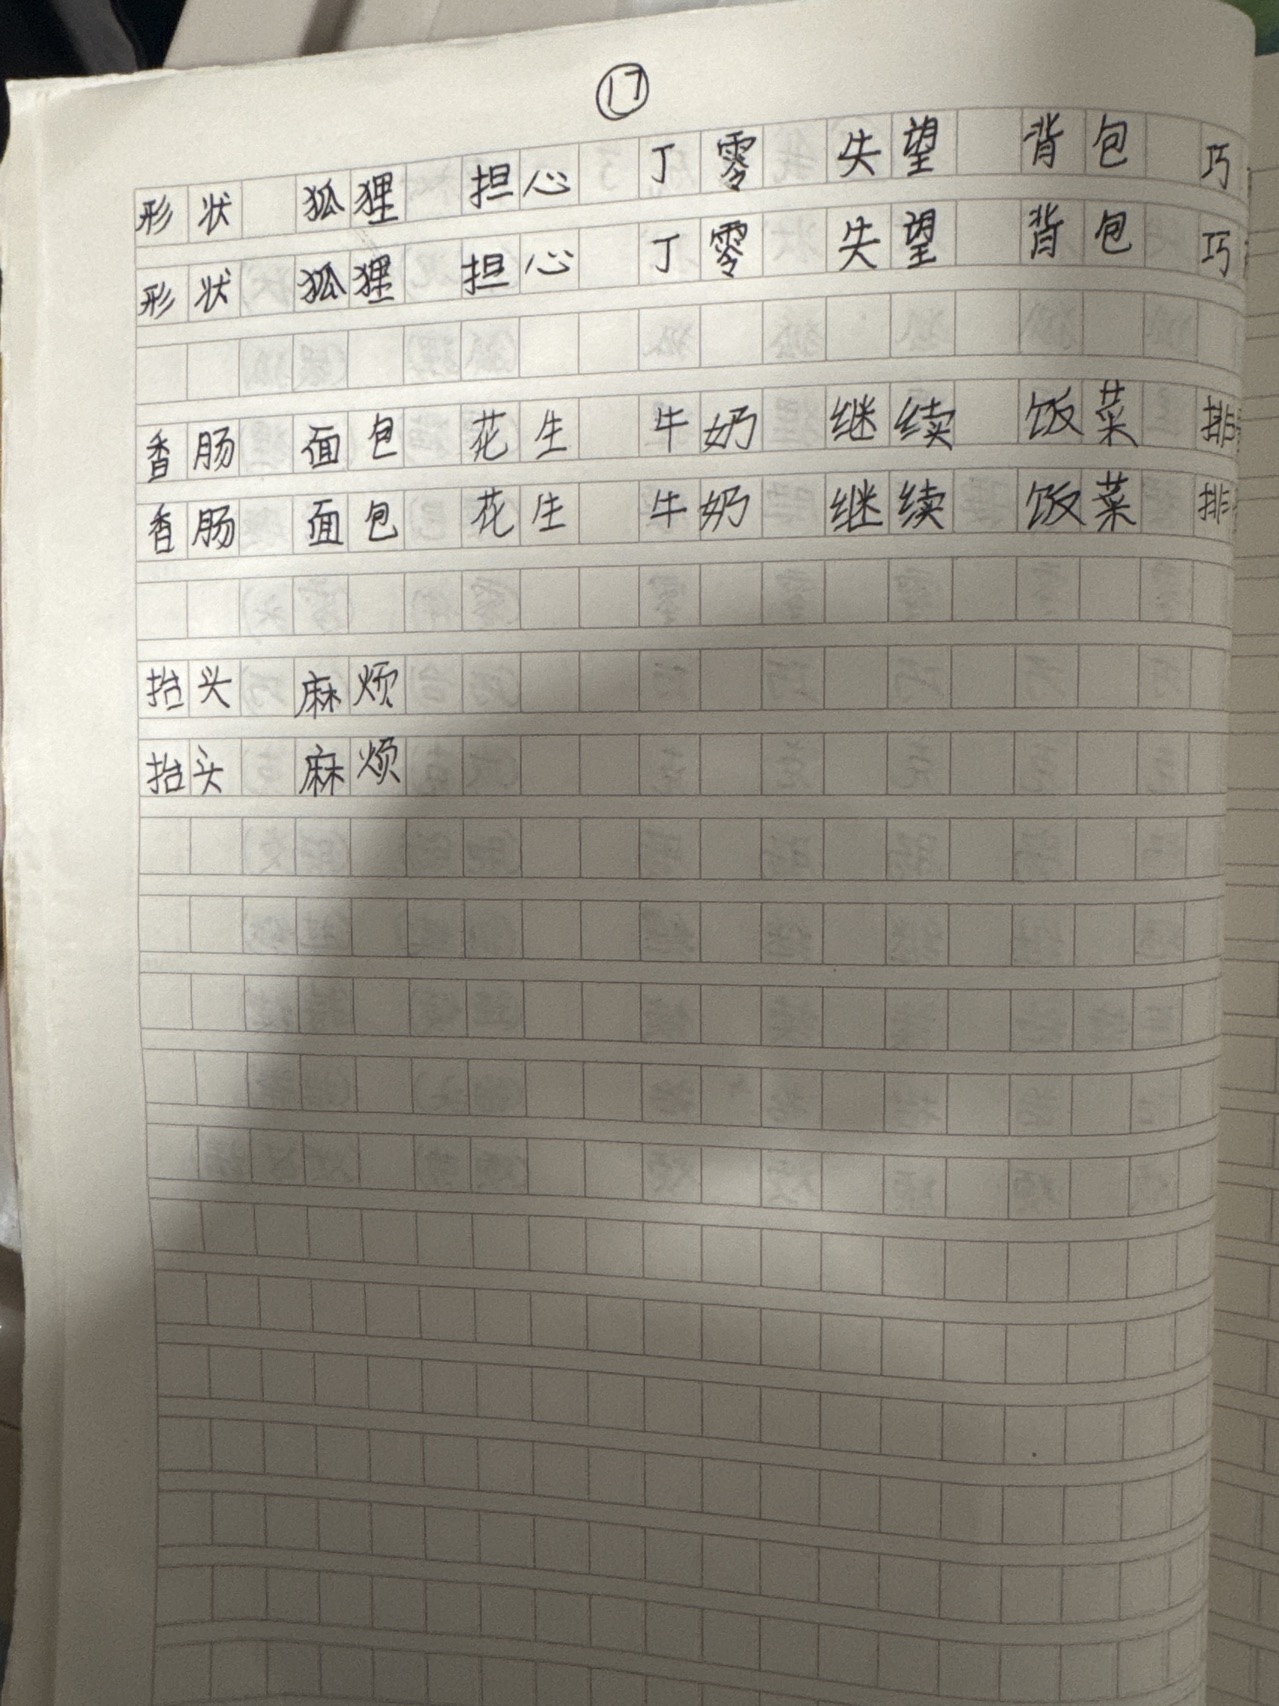 17
形状 狐狸 担心 丁零 失望 背包 巧
形状 狐狸 担心 丁零 失望 背包 巧
香肠 面包 花生 牛奶 继续 饭菜 排
香肠 面包 花生 牛奶 继续 饭菜 排
抬头 麻烦
抬头 麻烦